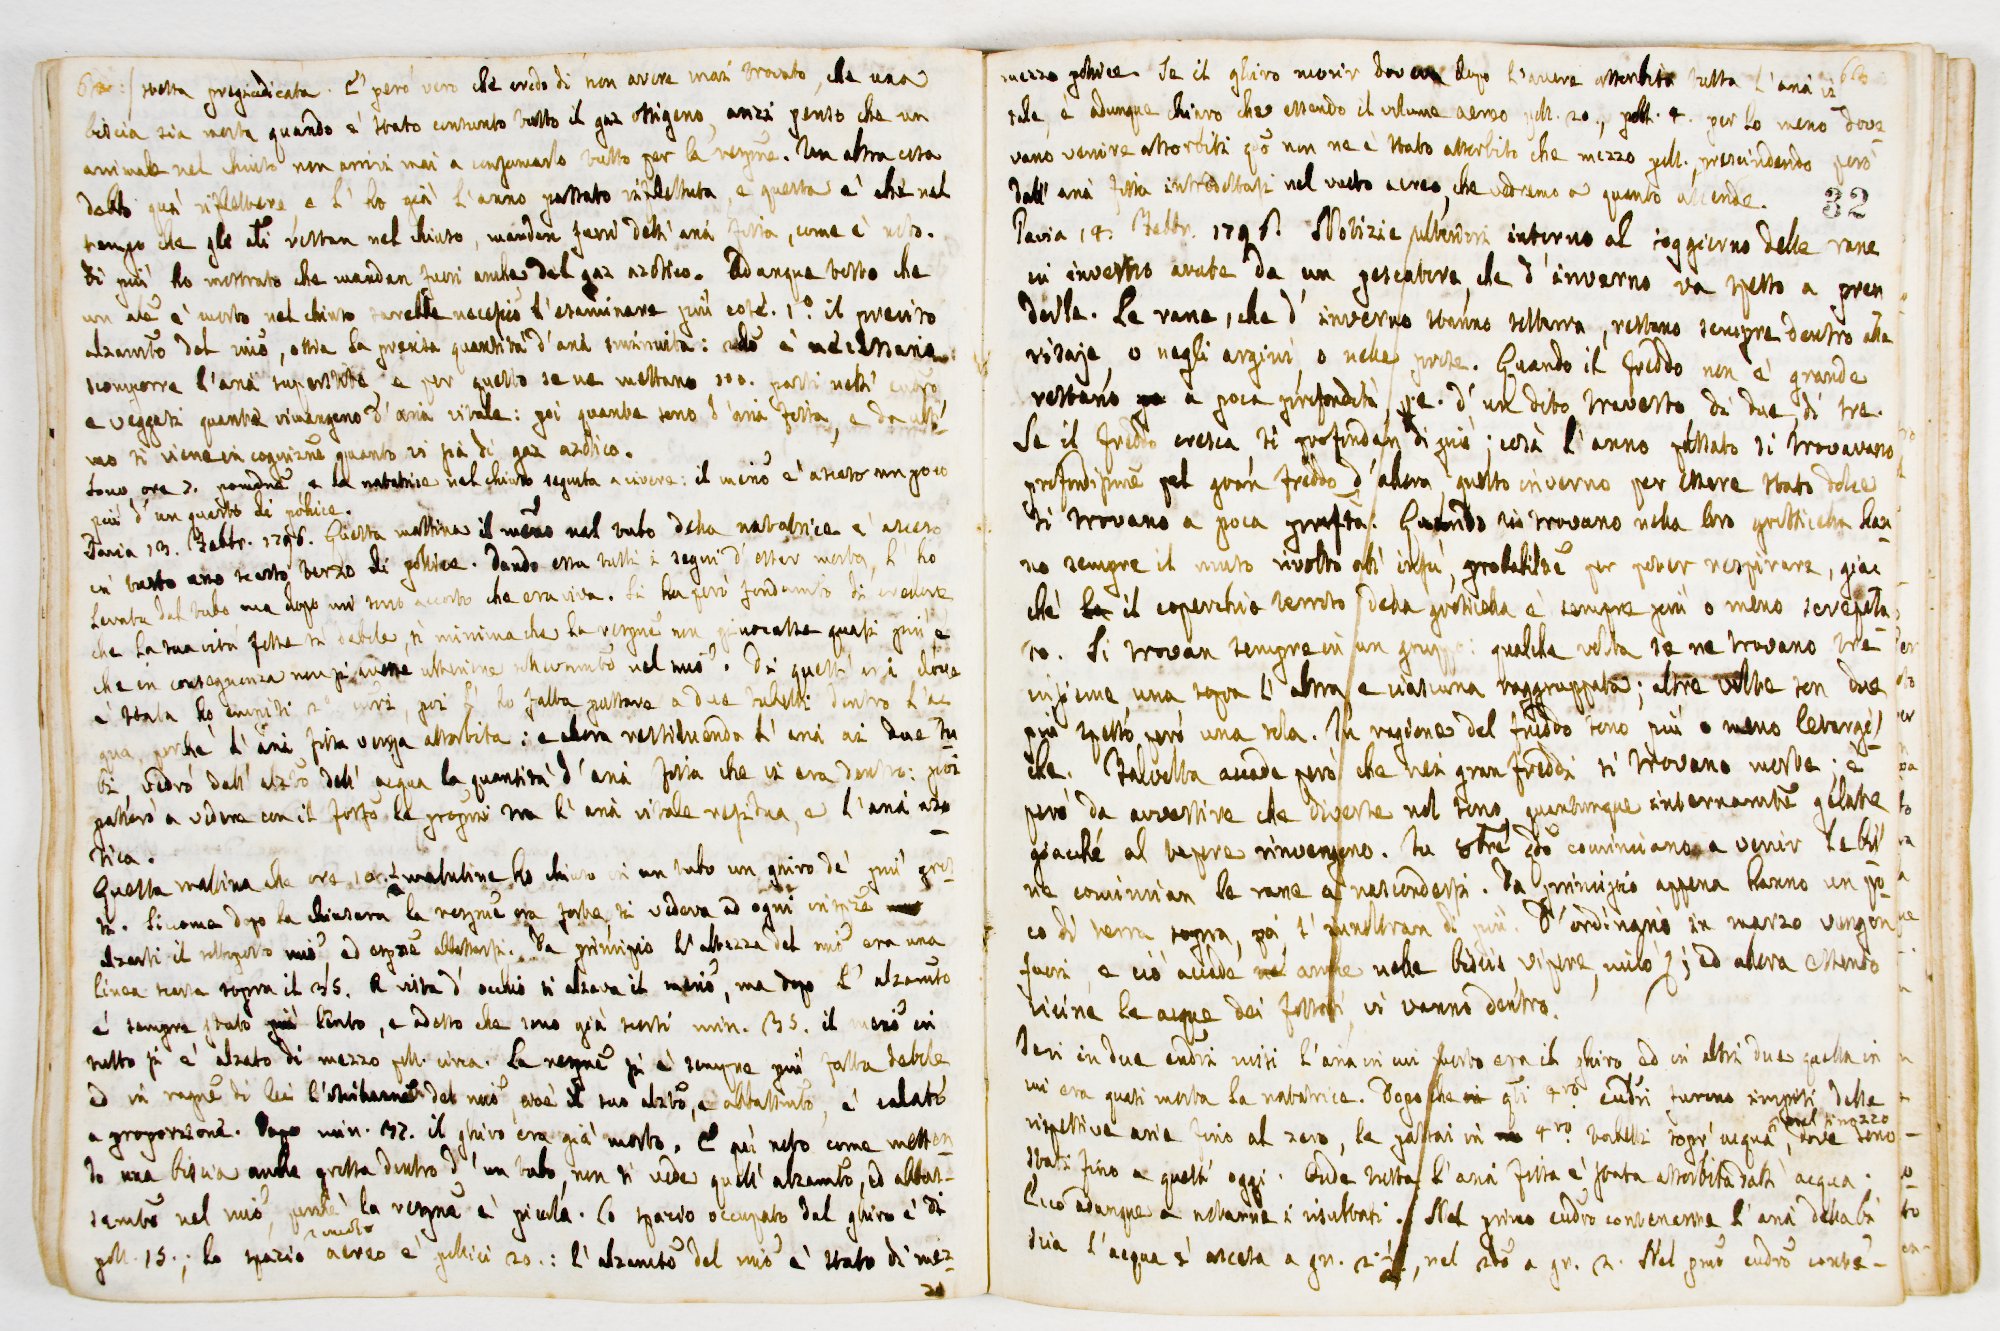 stessa pregiudicata. E' però vero che credo di non avere mai trovato, che una
biscia sia morta quando è stato consunto tutto il gaz ossigeno, anzi penso che un
animale nel chiuso non arrivi mai a consumarlo tutto per la respne. Un altra cosa
debbo qui riflettere, e l' ho già l'anno passato riflettuta, e questa è che nel
tempo che gli ali restan nel chiuso, mandan fuori dell' aria fissa, come è noto.
Di più ho mostrato che mandan fuori anche del gaz azotico. Adunque tosto che
un ale è morto nel chiuso sarebbe necessio l'esaminare più cose. 1.º il preciso
alzamto del mio, ossia la precisa quantità d'aria diminuita: 2do è necessario
scomporre l'aria superstite, e per questo se ne mettano 100. parti nell' eudro
e veggasi quante rimangono d'aria vitale: poi quante sono d'aria fissa, e da ulti-
mo si viene in cognizne quanto vi sia di gaz azotico.
Sono ore 2. pomdne e la natatrice nel chiuso seguita a vivere: il merio è asceso un poco
più d'un quarto di pollice.
Pavia 13. Febbr. 1796. Questa mattina il merio nel tubo della natatrice è asceso
in tutto uno scarso terzo di pollice. Dando essa tutti i segni d'esser morta, l' ho
levata dal tubo ma dopo mi sono accorto che era viva. Si ha però fondamto di credere
che la sua vita fosse sì debole, sì minima che la respne non giuocasse quasi più e
che in conseguenza non si avesse ulteriore
è stata ho empiti 2 , poi l' ho fatta passare a due tubetti dentro l'ac
qua, perchè l' aria fissa venga assorbita: e allora restituendo l' aria ai due tu
bi vedrò dall' alzto dell' acqua la quantità d'aria fissa che vi era dentro: poi
passerò a vedere con il fosfo le propni tra l' aria vitale residua, e l' aria azo
tica.
Questa mattina alle ore 10. 1/2 matutine ho chiuso in un tubo un ghiro de' più gros
si. Siccome dopo la chiusura la respne era forte, si vedeva ad ogni inspne
alzarsi il sottoposto mio ed espne abbassarsi. Da principio l'altezza del mio era una
linea scarsa sopra il 35. A vista d' occhio si alzava il merio, ma dopo l' alzamto
è sempre stato più lento, e adesso che sono già scorsi min. 35. il merio in
tutto si è alzato di mezzo poll. circa. La respne si è sempre più fatta debole
ed in ragne di lei l' del mio, cioè il suo alzto, e abbassmto, è calato
a proporzione. Dopo min. 37. il ghiro era già morto. E qui noto come metten
do una biscia anche grossa dentro d' un tubo, non si vede quell' alzamto, ed abbas-
samto nel mio, perchè la respne è picola. Lo spazio occupato dal ghiro è di
poll. 15.; lo spazio rimasto aereo è pollici 20.: l' alzamto del mio è stato di mez-
zo
mezzo pollice. Se il ghiro morir doveva dopo l'avere assorbita tutta l'aria vi
tale, è adunque chiaro che essendo il volume aereo poll. 20., poll. 4. per lo meno dove
vano venire assorbiti qdo non ne è stato assorbito che mezzo poll., prescindendo però
dall' aria fissa introdottasi nel vuoto aereo, che vedremo a quanto ascende.
32
Pavia 14. Febbr. 1796. Notizie ulteriori intorno al soggiorno delle rane
in inverno avute da un pescatore, che d'inverno va spesso a pren
derle. Le rane, che d' inverno stanno sotterra, restano sempre dentro alle
risaje, o negli argini, o nelle prose. Quando il freddo non è grande
restano a poca profondità p.e. d' un dito traverso di due, di tre.
Se il freddo cresca si profondan di più; così l'anno passato si trovavano
profondissme pel gran freddo d'allora, questo inverno per essere stato dolce
si trovano a poca profta. Quando si trovano nella loro grotticella han
no sempre il muso rivolto all' insù, probabilme per poter respirare, giac
chè il coperchio terroso della grotticella è sempre più o meno screpola
to. Si trovan sempre in un gruppo: qualche volta se ne trovano tre
insieme, una sopra l' altra e ciascuna raggruppata; altre volte son due
più spesso però una sola. In ragione del freddo sono più o meno letargi
che. Talvolta accade però che nei gran freddi si trovano morte; è
però da avvertire che diverse nol sono, quantunque internamte gelate
giacchè al tepore rinvengono. In 8bre qdo cominciano a venir le bri
ne comincian le rane a nascondersi. Da principio appena hanno un po
co di terra sopra, poi s' inoltran di più. D' ordinario in marzo vengon
fuori, e ciò accade anche nelle biscie vipere, ; ed allora essendo
vicine le acque dei fossati, vi vanno dentro.
Ieri in due eudri misi l'aria in cui morto era il ghiro ed in altri due quella in
cui era quasi morta la natatrice. Dopo che qti 4ro eudri furono empiti delle
rispettive arie fino al zero, le passai in 4ro torbetti sopr' acqua, nel pinozzo dove sono
stati fino a quest' oggi. Onde tutta l' aria fissa è stata assorbita dall' acqua.
Ecco adunque a notarne i risultati. Nel primo eudro contenente l' aria della bi
scia l'acqua è ascesa a gr. 2 1/2, nel 2do a gr. 2. Nel pmo eudro conte-